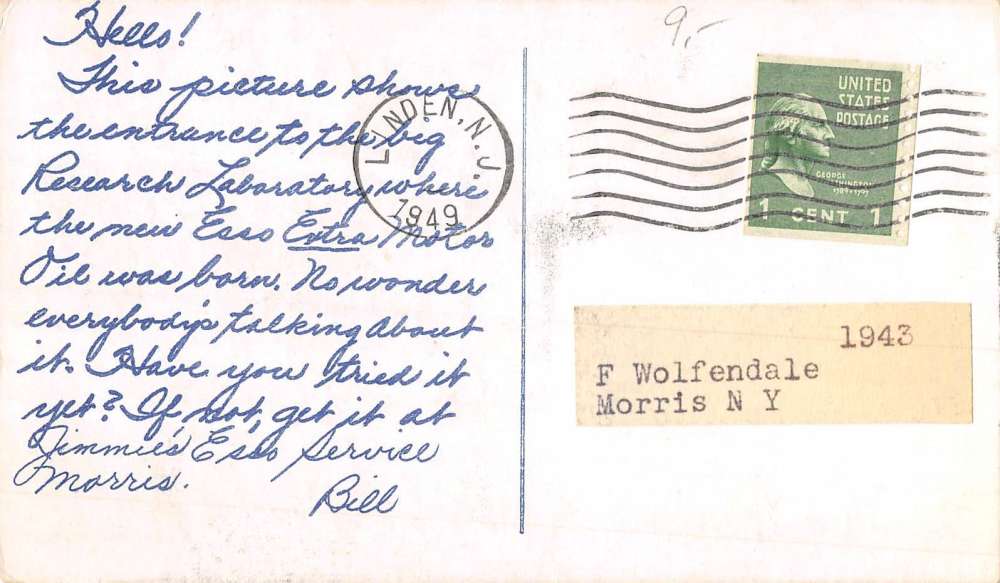 Hello!
This picture shows
the entrance to the big
Research Laboratory where
the new Esso Extra Motor
Oil was born. No wonder
everybody's talking about
it. Have you tried it
yet? If not, get it at
Jimmie's Esso Service
Morris.
Bill
9,-
LINDEN, N.J.
1949
UNITED
STATES
POSTAGE
GEORGE
WASHINGTON
1789-1797
1 CENT 1
1943
F Wolfendale
Morris N Y